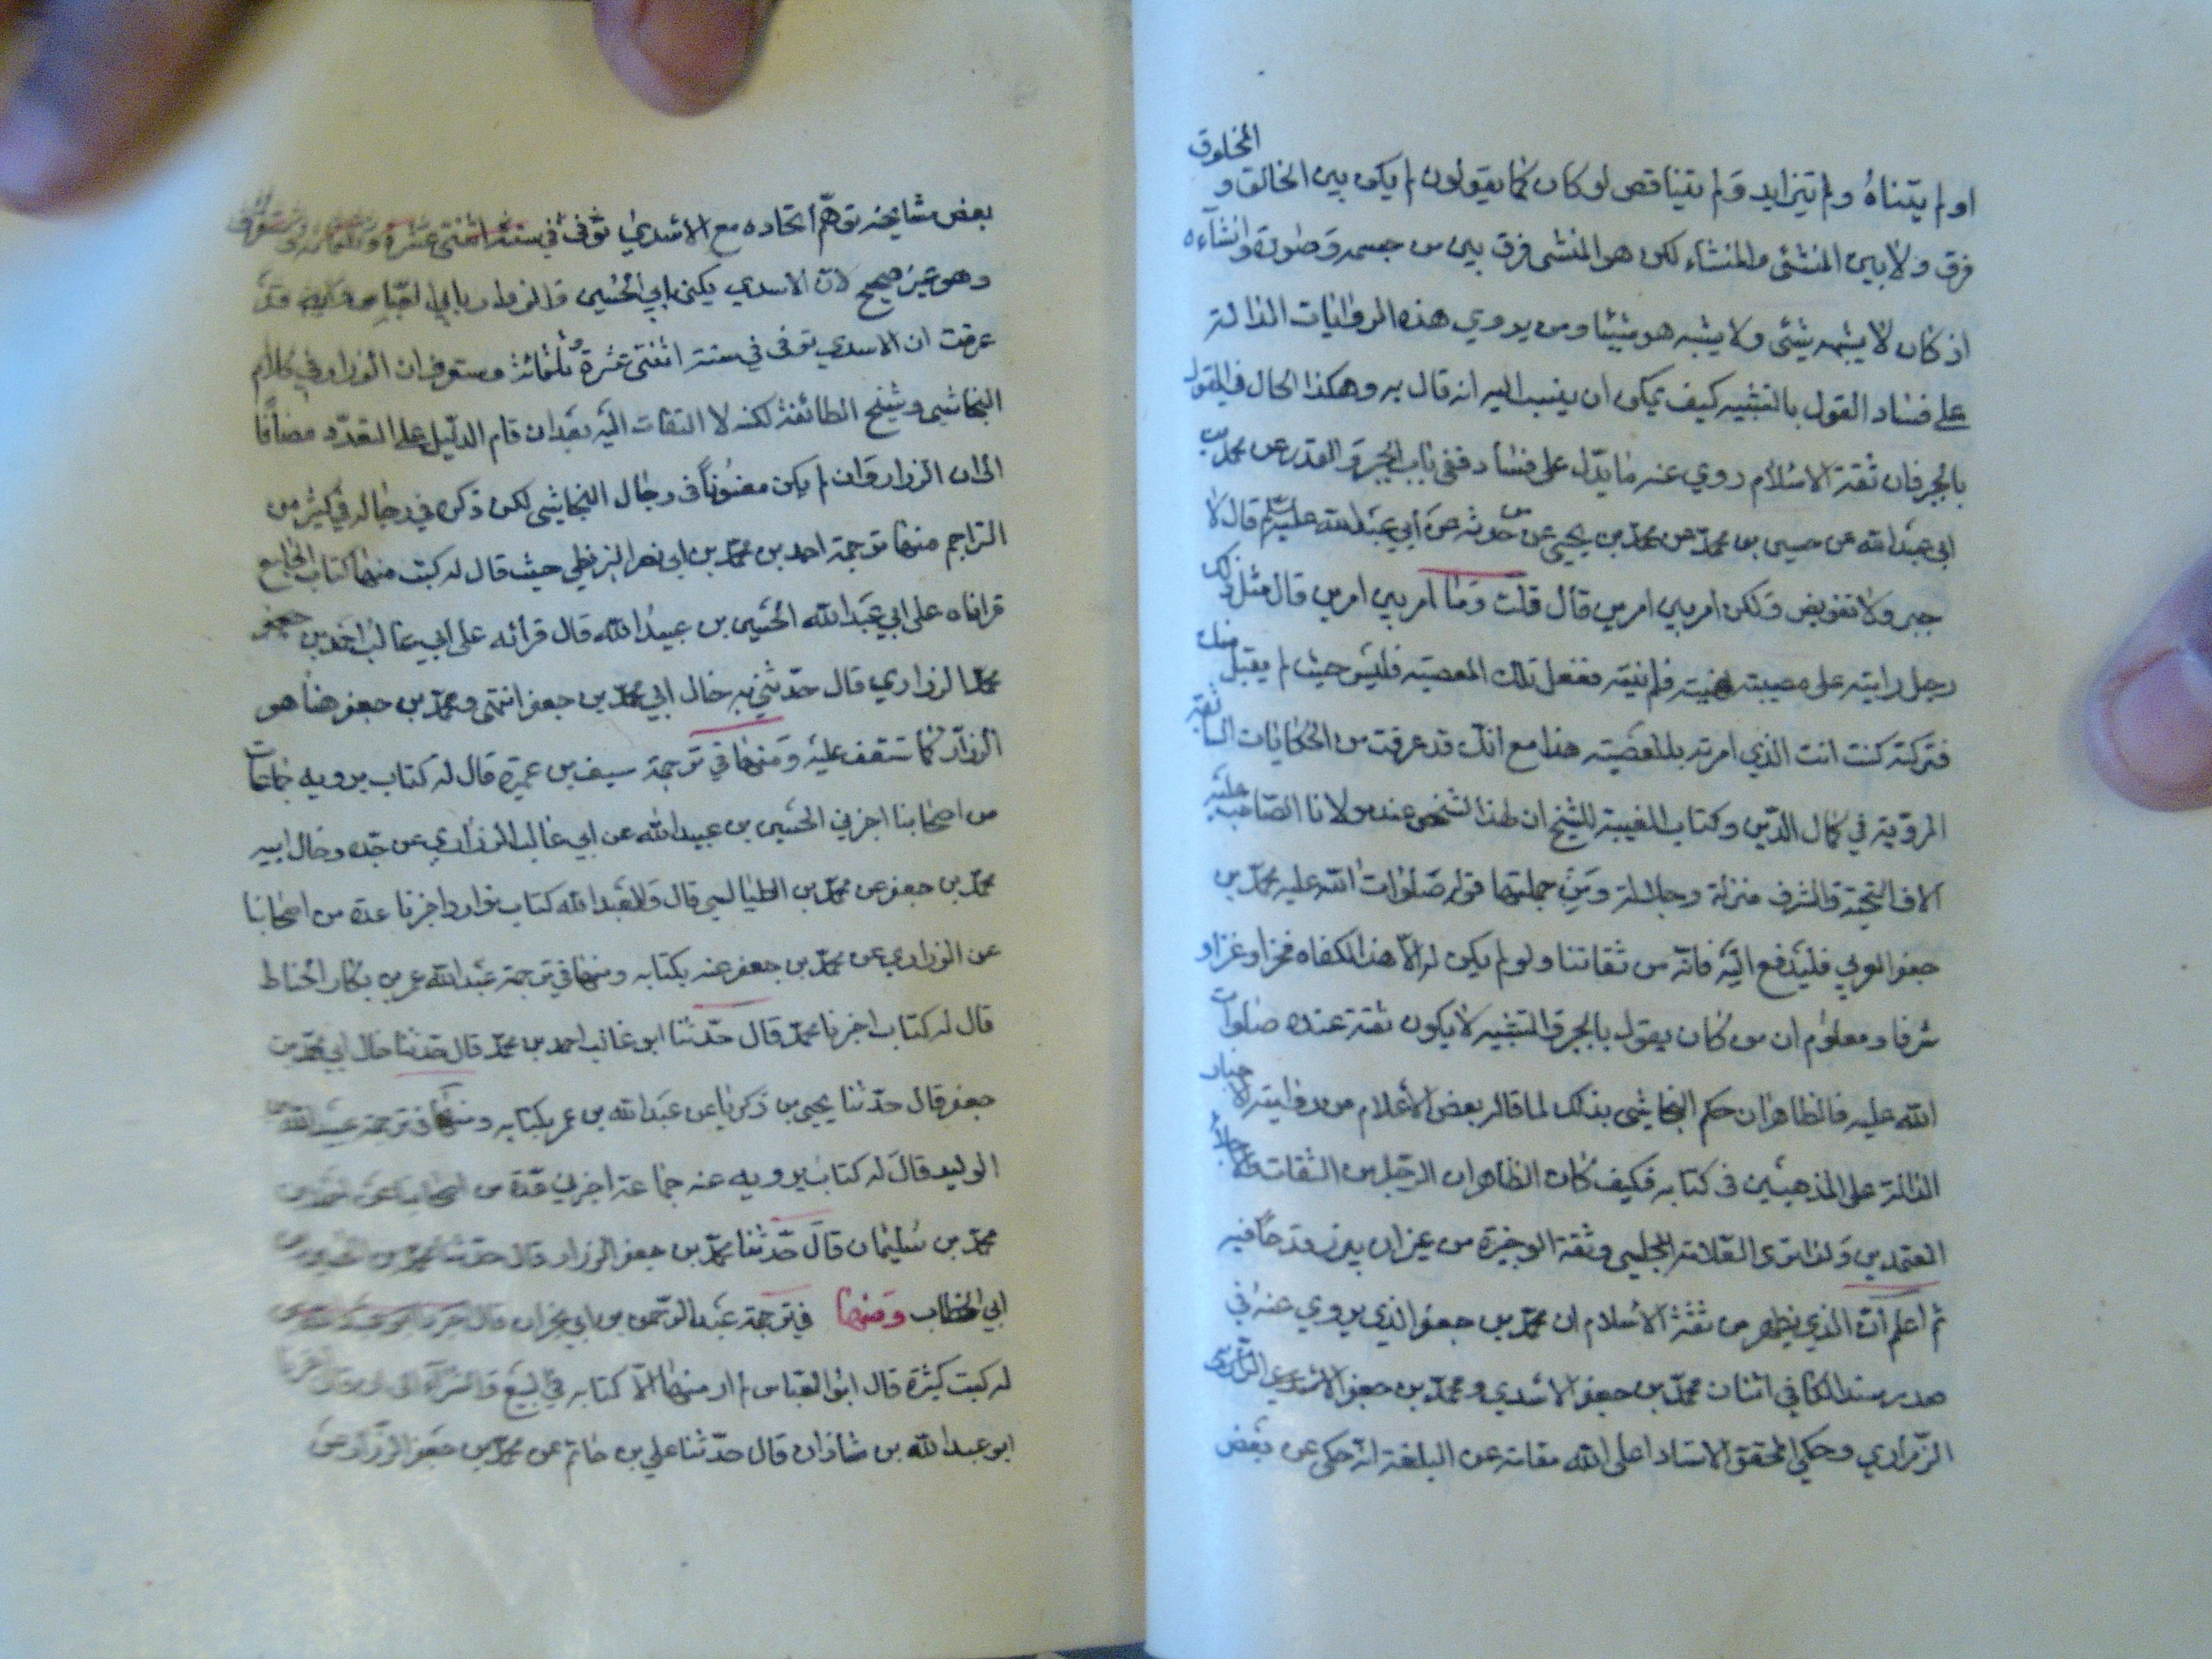 او لم يتناه ولم يتزايد ولم يتناقص لو كان كما يقولون لم يكن بين الخالق و المخلوق
فرق ولا بين المنشئ والمنشاء لكن هو المنشى فرق بين من جسمه وصوره وانشآءه
اذ كان لا يشبهه شئى ولا يشبه هو شيئا ومن يروي هذه الروايات الدالة
على فساد القول بالتشبيه كيف يمكن ان ينسب اليه انه قال به وهكذا الحال في القول
بالجبر فان ثقة الاسلام روي عنه ما يدل على فساده ففي باب الجبر والقدر عن محمد بن
ابي عبد الله عن حسين بن محمد عن محمد بن يحيى عمن حدثه عن أبي عبد الله عليه السلم قال لا
جبر ولا تفويض ولكن امر بين امرين قال قلت وما امر بين امرين قال مثل ذلك
رجل رايته على معصيته فنهيته فلم ينته ففعل تلك المعصيته فليس حيث لم يقبل منك
فتركته كنت انت الذي امرته بالمعصيته هذا مع انك قد عرفت من الحكايات السابقة
المروية في كمال الدين وكتاب الغيبة للشيخ ان لهذا الشخص عند مولانا الصاحب عليه
الاف التحية والشرف منزلة وجلالة ومن جملتها قوله صلوات الله عليه محمد بن
جعفر العربي فليدفع اليه فانه من ثقاتنا ولو لم يكن له الا هذا لكفاه فخرا وعزا و
شرفا ومعلوم ان من كان يقول بالجبر والتشبيه لا يكون ثقة عنده صلوات
الله عليه فالظاهر ان حكم النجاشي بذلك لما قاله بعض الأعلام من روايته الاخبار
الدالة على المذهبين في كتابه فكيف كان الظاهر ان الرجل من الثقات والاجلاء
المعتمدين ولذا ترى العلامة المجلسي وثقة الوجيزة من غير ان يبرز قدحا فيه
ثم اعلم ان الذي يظهر من ثقة الاسلام ان محمد بن جعفر الذي يروي عنه في
صدر سند الكافي اثنان محمد بن جعفر الاسدي ومحمد بن جعفر
الرزاري وحكي المحقق الاستاد اعلى الله مقامه عن البلغة انه حكى عن بعض
بعض مشايخه توهم اتحاده مع الاسدي توفى في سنة اثنتى عشرة وثلثمائة
وهو غير صحيح لان الاسدي يكنى بابي الحسين والرزاز بابي العباس وايضا قد
عرفت ان الاسدي توفى في سنة اثنتى عشرة وثلثمائة وستعرف ان الرزاز في كلام
النجاشي وشيخ الطائفة لكنه لا التفات اليه بعد ان قام الدليل على التعدد مضافا
الى ان الرزاز وان لم يكن معنونا في رجال النجاشي لكن ذكره في رجاله في كثير من
التراجم منها ترجمة احمد بن محمد بن ابي نصر البزنطي حيث قال له كتب منها كتاب الجامع
قراناه على ابي عبد الله الحسين بن عبيد الله قال قرأته على ابي غالب احمد بن
محمد الزراري قال حدثني به خال ابي محمد بن جعفر انتهى ومحمد بن جعفر هنا هو
الرزاز كما ستقف عليه ومنها في ترجمة سيف بن عميرة قال له كتاب يرويه جماعات
من اصحابنا اخبرني الحسين بن عبيد الله عن ابي غالب الزراري عن جده وخال ابيه
محمد بن جعفر عن محمد بن الطيالسي قال ولعبد الله كتاب نوادر اخبرنا عدة من اصحابنا
عن الزراري عن محمد بن جعفر عنه بكتابه ومنها في ترجمة عبد الله عمر بن بكار الحناط
قال له كتاب اخبرنا محمد قال حدثنا ابو غالب احمد بن محمد قال حدثنا خال ابي محمد بن
جعفر قال حدثنا يحيى بن زكريا عن عبد الله بن عمر بكتابه ومنها في ترجمة عبيد الله بن
الوليد قال له كتاب يرويه عنه جماعة اخبرني عدة من اصحابنا عن احمد بن
محمد بن سليمان قال حدثنا محمد بن جعفر الرزاز قال حدثنا محمد بن الحسين بن
ابي الخطاب ومنها في ترجمة عبد الرحمن بن ابي نجران قال
له كتب كثيرة قال ابو العباس لم ار منها الا كتابه في البيع والشرآء
ابو عبد الله بن شاذان قال حدثنا علي بن حاتم عن محمد بن جعفر الرزاز عن